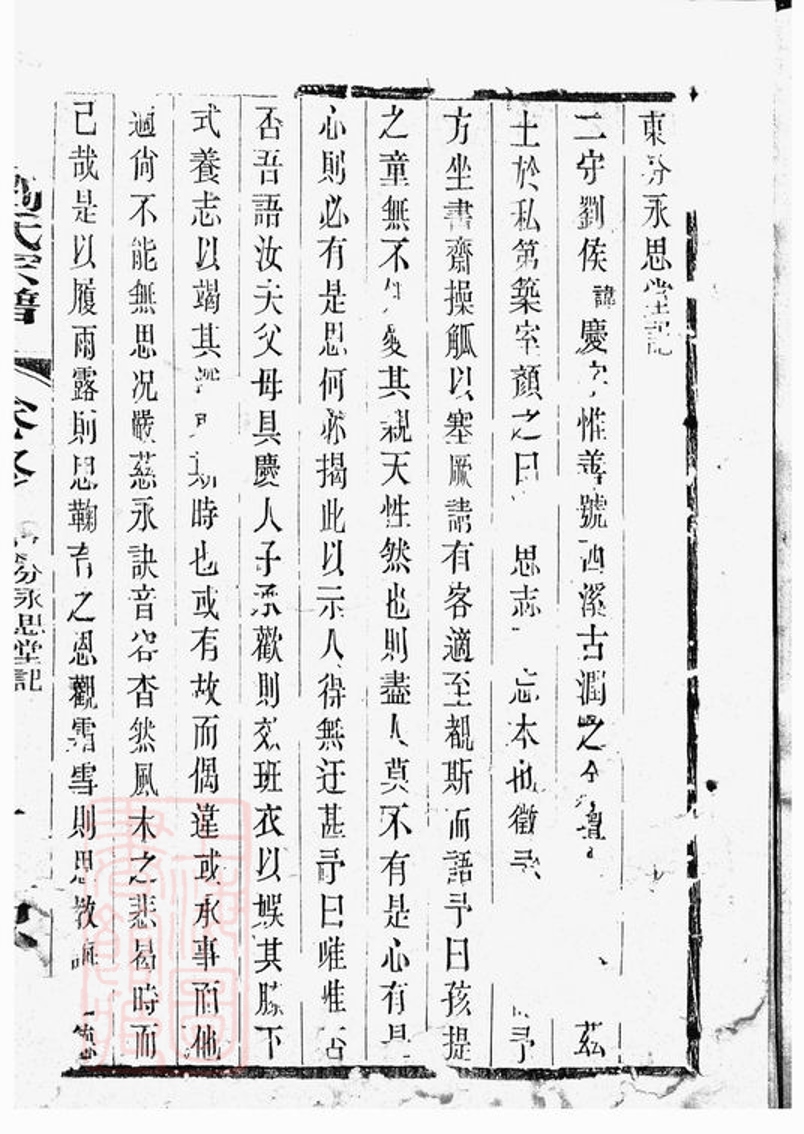 東分永思堂記
二守劉侯諱慶字惟善號西溪古潤之 茲
土於私第築室顏之曰 思志 忘本也徵予 予
方坐書齋操觚以塞厥請有客適至覩斯而語予曰孩提
之童無不 愛其親天性然也則盡人莫不有是心有是
心則必有是思何必揭此以示人得無迂甚予曰唯唯否
否吾語汝夫父母具慶人子承歡則効班衣以娛其膝下
式養志以竭其 時也或有故而偶違或承事而他
適尚不能無思况嚴慈永訣音容杳然風木之悲曷時而
已哉是以履雨露則思鞠育之恩觀霜雪則思教誨 德
劉氏宗譜
分永思堂記